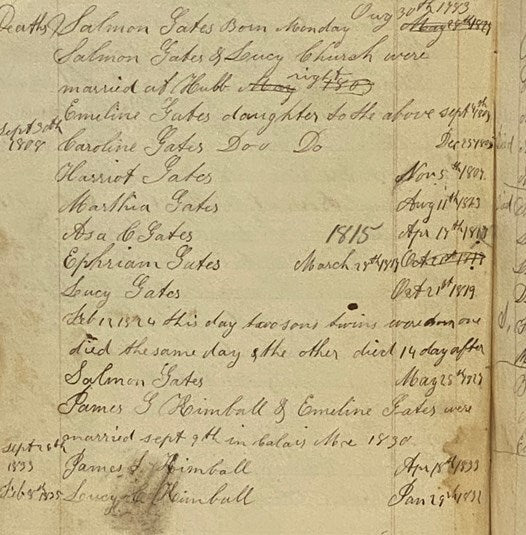 Deaths Salmon Gates Born Monday Aug 30th 1783
Salmon Gates & Lucy Church were
married at Hubb May right 1803
Emeline Gates daughter to the above sept 4th
Sept 30th 1808 Caroline Gates Doo Do Dec 25th
Harriot Gates Nov 5th 1809
Marthia Gates Aug 11th
Asa C Gates 1815 Apr 17th
Ephriam Gates March 28th Oct 20th
Lucy Gates Oct 21st 1819
Feb 12 1824 this day two sons twins were born one
died the same day & the other died 14 day after
Salmon Gates May 25th
James G Kimball & Emeline Gates were
married sept 9th in Calais Me 1830
Sept 26th 1833 James S Kimball Apr 18th 1833
Feb 8th 1835 Loucy C Kimball Jan 29th